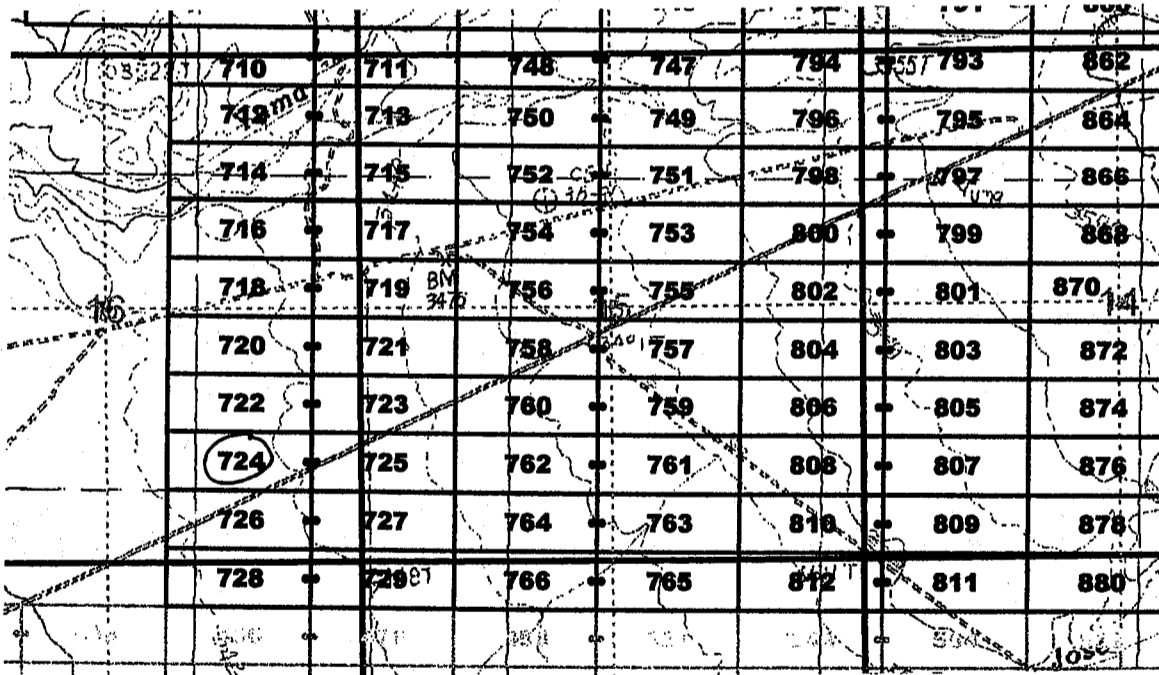 710 711 748 747 794 793 862
712 713 750 749 796 795 864
714 715 752 751 798 797 866
716 717 754 753 800 799 868
718 719 756 755 802 801 870
BM
3475
16 15 14
720 721 758 757 804 803 872
722 723 760 759 806 805 874
724 725 762 761 808 807 876
726 727 764 763 810 809 878
728 729 766 765 812 811 880
Jose